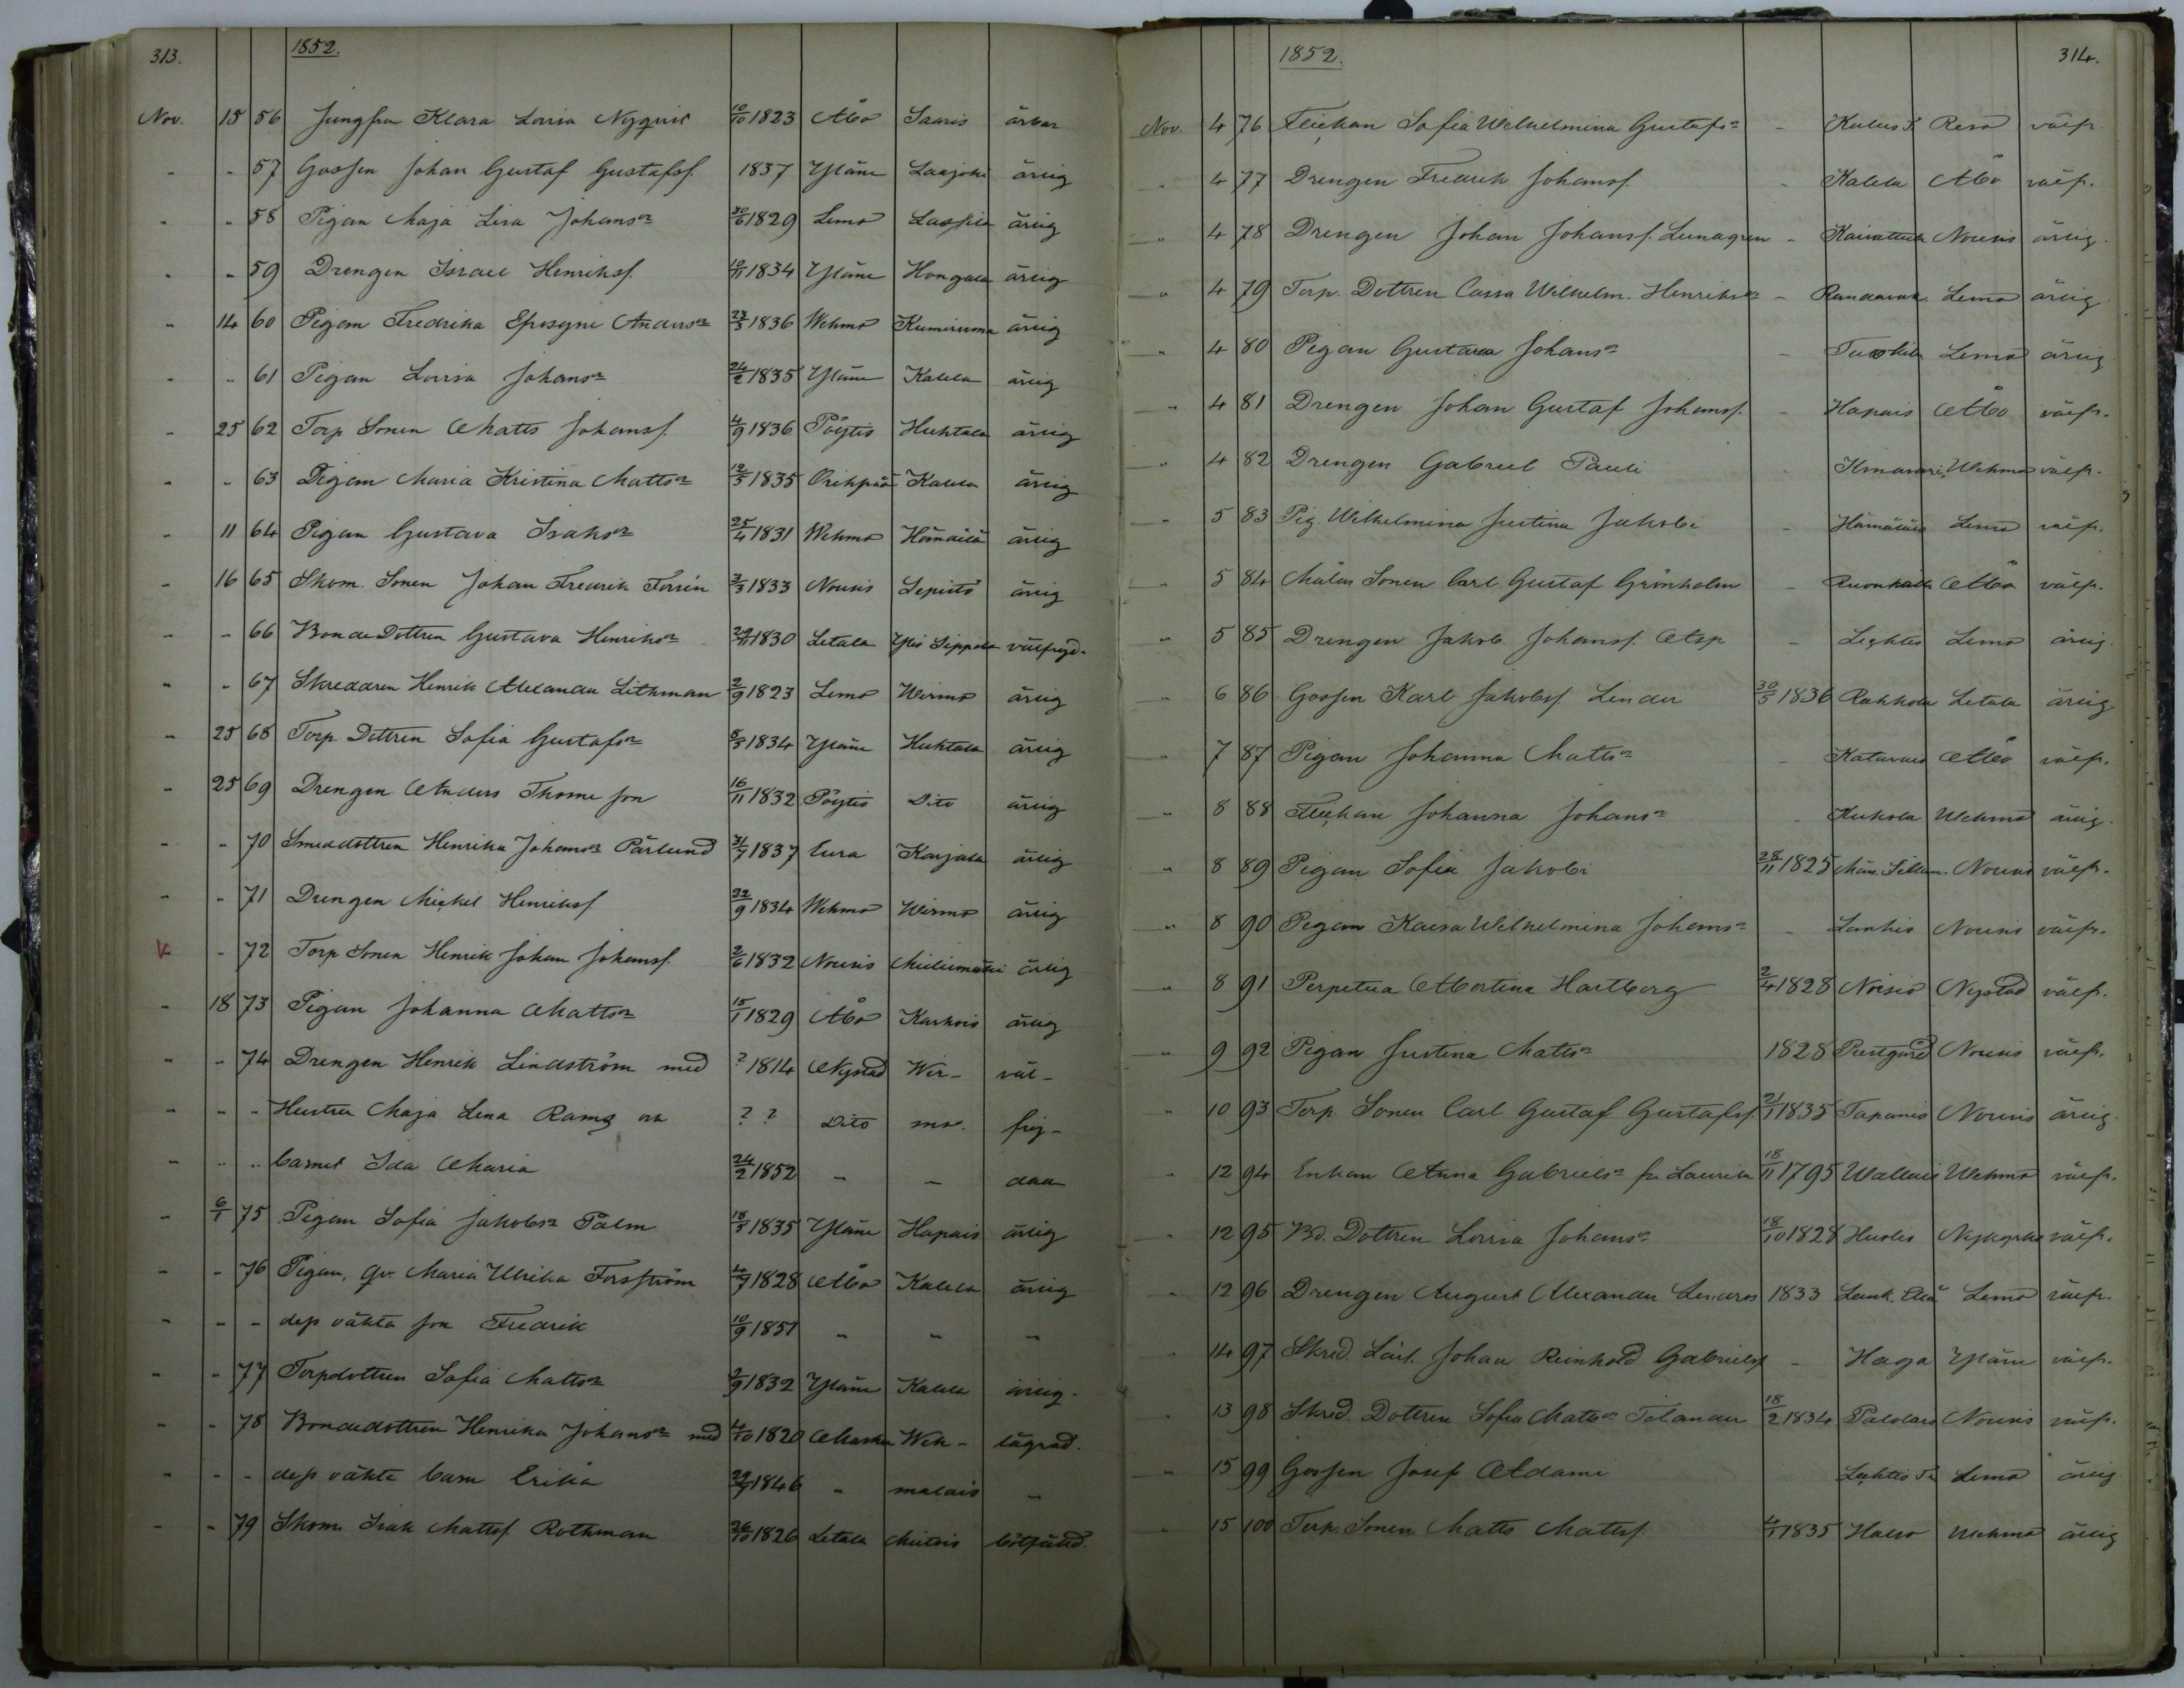 313. 1852.
Nov. 15 56 Jungfru Klara Lovisa Nyqvist 10/10 1823 Åbo Saaris ärbar
- - 57 Gossen Johan Gustaf Gustafss. 1837 Yläne Laajoki ärlig
- - 58 Pigan Maja Lisa Johansdr 30/6 1829 Lemo ärlig
- - 59 Drengen Israel Henrikss. 10/11 1834 Yläne Hongala ärlig
- 14 60 Pigan Fredrika Andersdr 23/3 1836 Wehmo ärlig
- - 61 Pigan Lovisa Johansdr 24/2 1835 Yläne Kalela ärlig
- 25 62 Torp Sonen Matts Johanss. 4/9 1836 Pöytis Huhtala ärlig
- - 63 Pigan Maria Kristina Mattsdr 12/3 1835 Oripää Kalela ärlig
- 11 64 Pigan Gustava Isaksdr 25/4 1831 Wehmo ärlig
- 16 65 Skom. Sonen Johan Fredrik Forsén 3/3 1833 Nousis Lepistö ärlig
- - 66 Bonde Dottren Gustava Henriksdr 29/11 1830 Letala Yli Sippola välfrejd.
- - 67 Skreddaren Henrik Alexander Lithman 2/9 1823 Lemo Wirmo ärlig
- 25 68 Torp. Dottren Sofia Gustafsdr 8/3 1834 Yläne Huhtala ärlig
- 25 69 Drengen Anders Thome son 16/11 1832 Pöytis Dito ärlig
- - 70 Smeddottren Henrika Johansdr Pärlund 31/7 1837 Eura Karjala ärlig
- - 71 Drengen Mickel Henrikss 22/9 1834 Wehmo Wirmo ärlig
V - 72 Torp Sonen Henrik Johan Johanss. 2/6 1832 Nousis ärlig
- 18 73 Pigan Johanna Mattsdr 15/1 1829 Åbo Karhois ärlig
- - 74 Drengen Henrik Lindström med ? 1814 Nystad Wir- väl-
- - - Hustru Maja Lena dr ? ? Dito mo. frej-
- - - barnet Ida Maria 24/2 1852 - - dade
- 6/1 75 Pigan Sofia Jakobsdr Palm 18/3 1835 Yläne Hapais ärlig
- - 76 Pigan, Qv. Maria Ulrika Forsström 1828 Åbo Kalela ärlig
- - - dess oäkta son Fredrik 10/9 1851 - - -
- - 77 Torpdottren Sofia Mattsdr 2/9 1832 Yläne Kalela ärlig.
- - 78 Bondedottren Henrika Johansdr med 4/10 1820 Masku Weh- lägrad.
- - - dess oäkta barn Erika 29/7 1846 - malais -
- - 79 Skom. Isak Mattss. Rothman 26/10 1826 Letala Mietois
1852. 314.
Nov. 4 76 Flickan Sofia Wilhelmina Gustafsdr - Reso välfr.
" 4 77 Drengen Fredrik Johanss. - Kalela Åbo välfr.
" 4 78 Drengen Johan Johanss. - Nousis ärlig.
" 4 79 Torp. Dottren Cassa Wilhelm. Henriksdr - Lemo ärlig
" 4 80 Pigan Gustava Johansdr - Lemo ärlig
" 4 81 Drengen Johan Gustaf Johanss. - Hapais Åbo välfr.
" 4 82 Drengen Gabriel Pauli Wehmo välfr.
" 5 83 Pig. Wilhelmina Justina Jakobi - Lemo välfr.
" 5 84 Målar Sonen Carl Gustaf Grönholm - Åbo välfr.
" 5 85 Drengen Jakob Johanss. - Lemo ärlig
" 6 86 Gossen Karl Jakobss. Linder 30/5 1836 Letala ärlig
" 7 87 Pigan Johanna Mattsdr - Åbo välfr.
" 8 88 Flickan Johanna Johansdr - Kukola Wehmo ärlig.
" 8 89 Pigan Sofia Jakobi 28/11 1825 Nousis välfr.
" 8 90 Pigan Kaisa Wilhelmina Johansdr - Nousis välfr.
" 8 91 Perpetua Albertina Hartberg 2/4 1828 Nystad välfr.
" 9 92 Pigan Justina Mattsdr 1828 Prestgård Nousis välfr.
" 10 93 Torp. Sonen Carl Gustaf Gustafss. 21/1 1835 Tapanis Nousis ärlig.
" 12 94 Enkan Anna Gabrielsdr fr. Laurila 18/11 1795 Wallais Wehmo välfr.
" 12 95 Bd. Dottren Lovisa Johansdr 18/10 1828 Nykyrka välfr.
" 12 96 Drengen August Alexander 1833 Lemo välfr.
" 14 97 Skred. Lärl. Johan Reinhold Gabrielss - Haga Yläne välfr.
" 13 98 Skred. Dottren Sofia Mattsdr Telander 18/2 1834 Palolais Nousis välfr.
" 15 99 Gossen Josef Adami Lemo ärlig
" 15 100 Torp. Sonen Matts Mattss. 1835 Wehmo ärlig